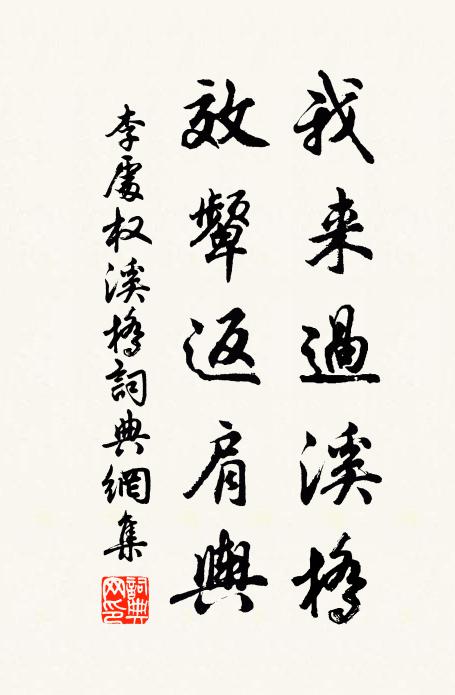 我来過溪橋
效顰返肩輿
李處权溪橋詞典網集
詞典网印